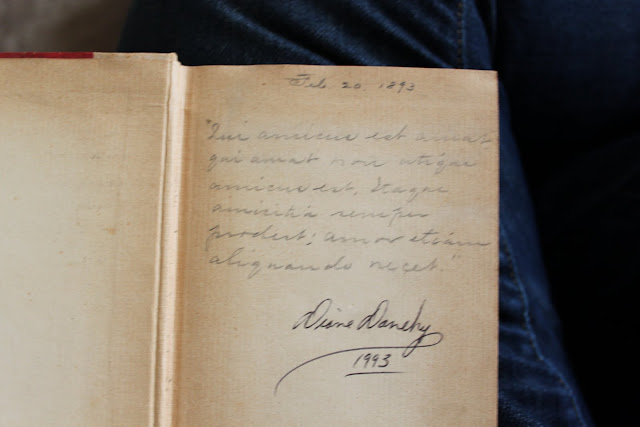 Feb. 20. 1893
"Qui amicus est amat
qui amat non utique
amicus est. Itaque
amicitia semper
prodest; amor etiam
aliquando nocet."
Diane
1993